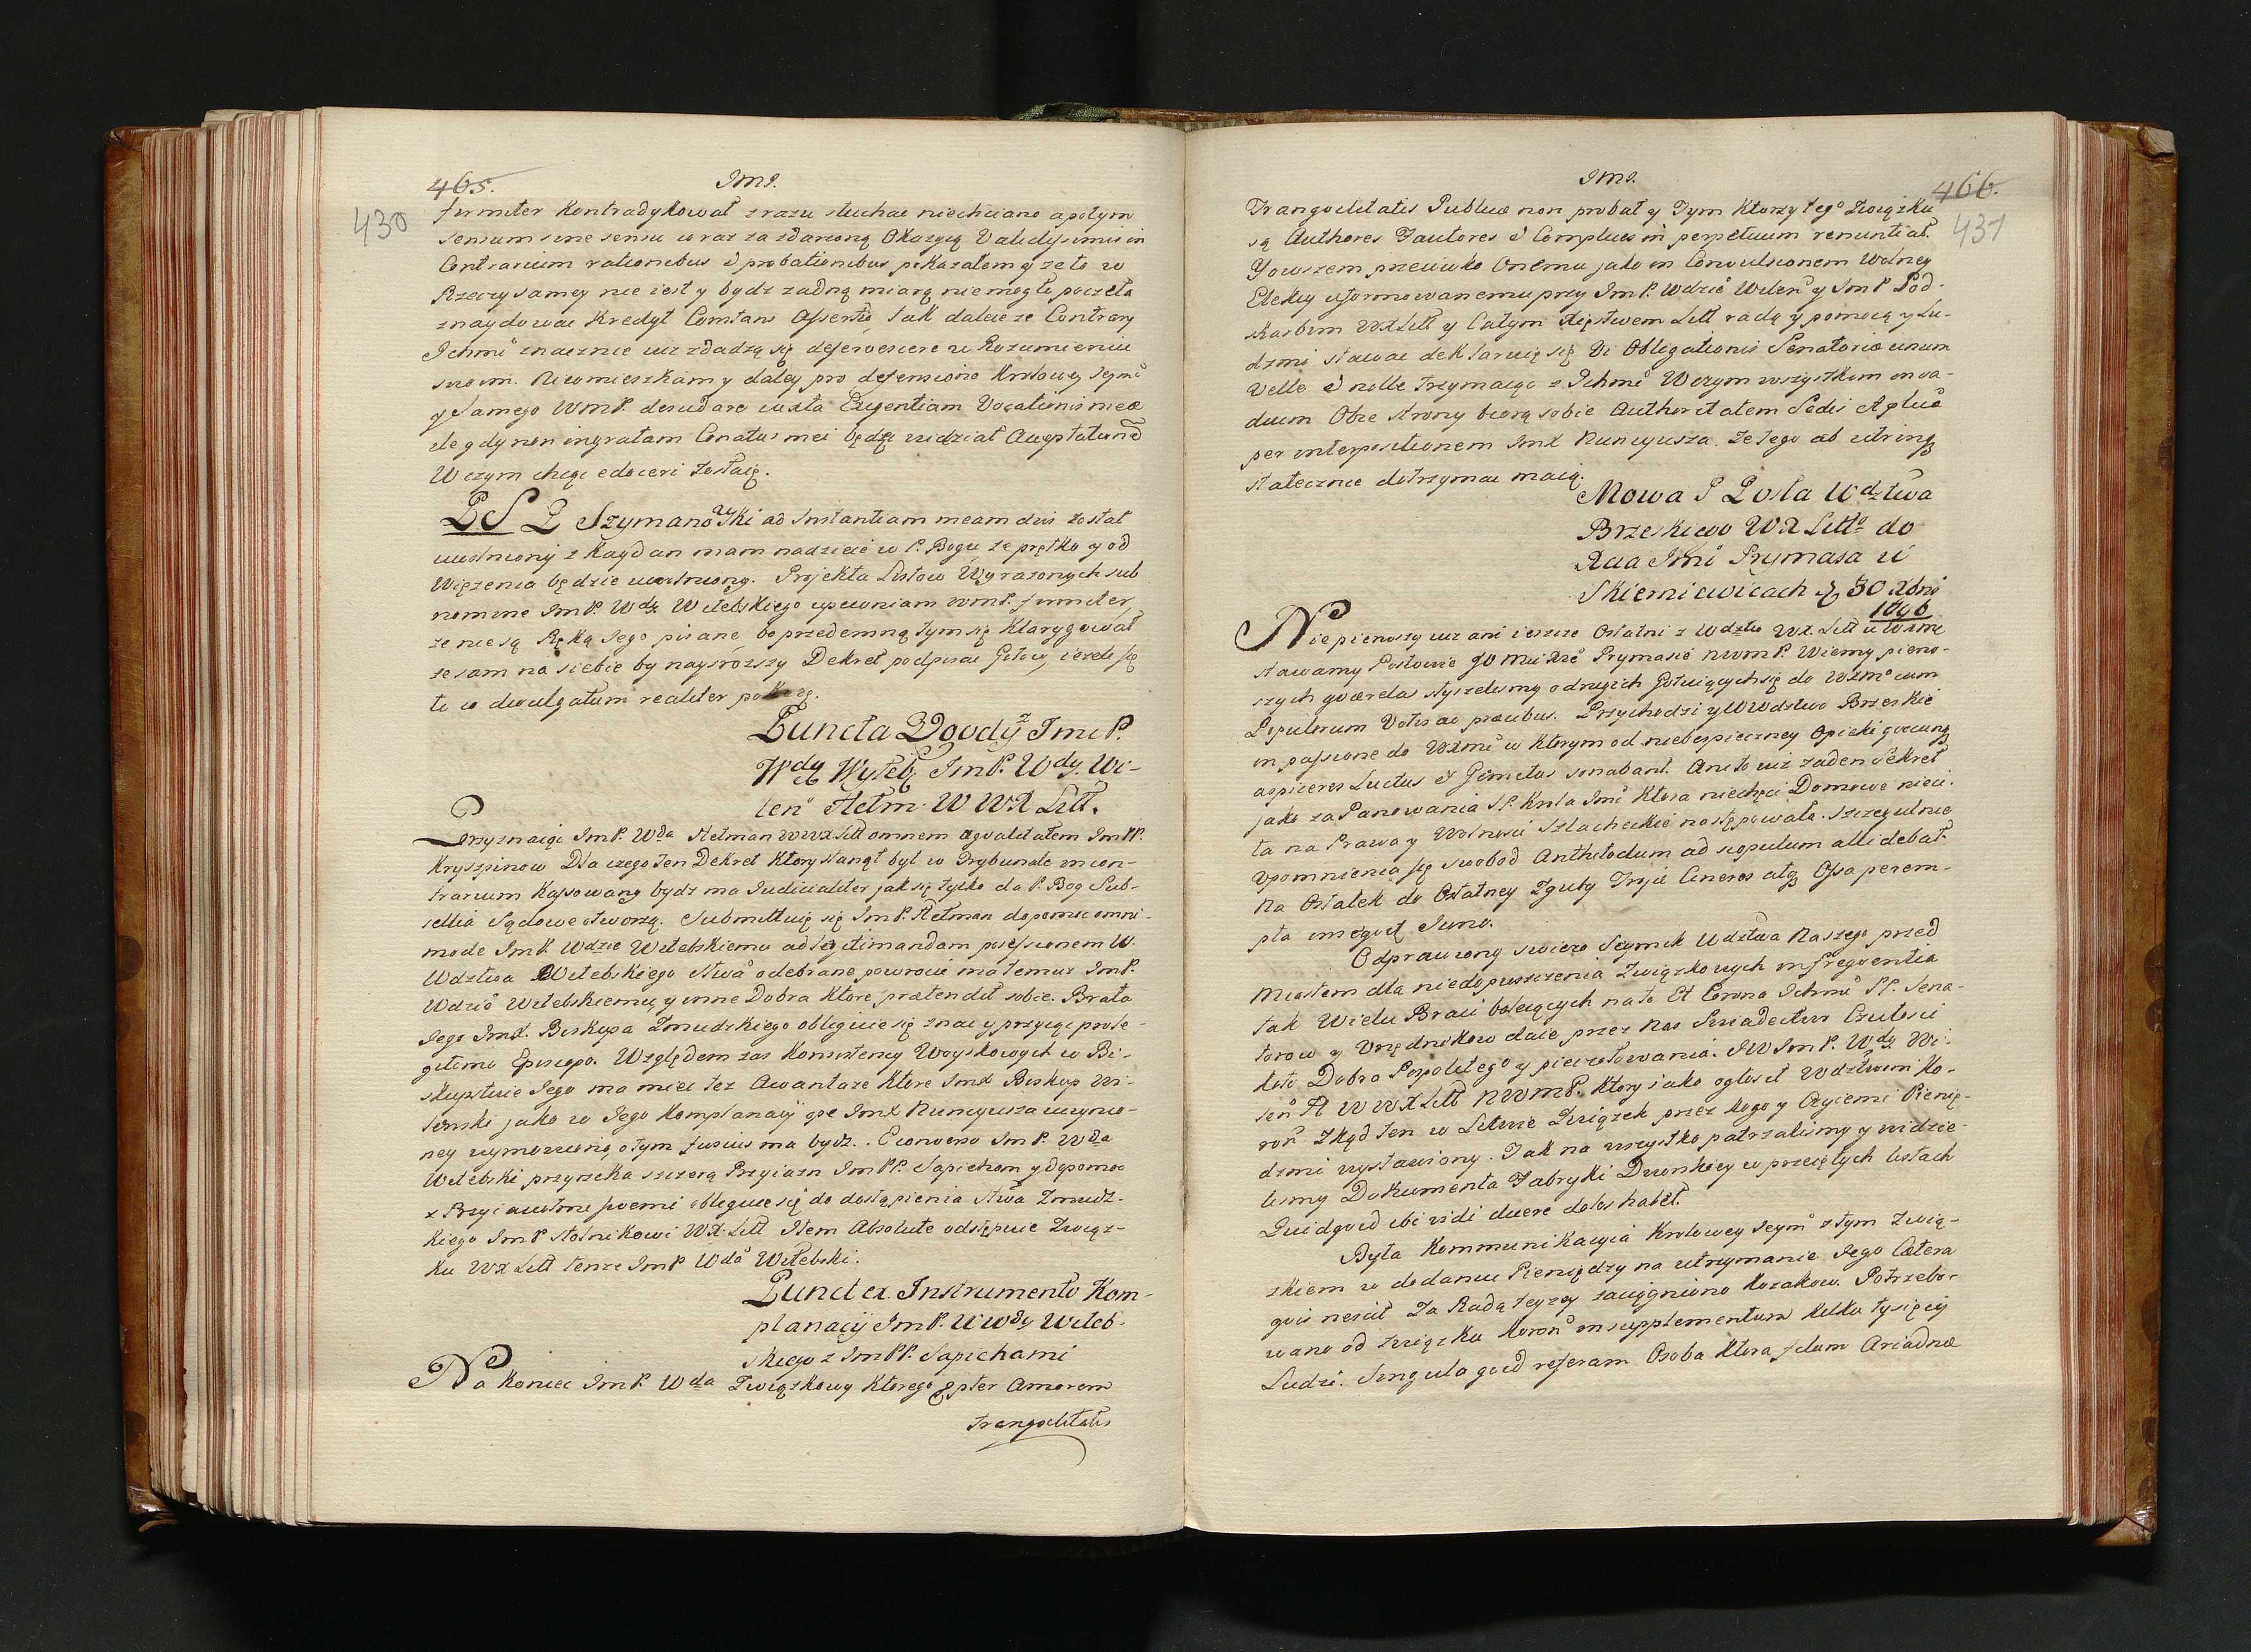 465.
Jmś.
430
firmiter kontradykował zrazu słuchac niechciano a potym
sensum sine sensu wraz za zdarzoną Okazyą Validyssimis in
Contrarium rationibus & probationibus pokazałem y ze to w
Rzeczy samey nie iest y bydz zadną miarą niemogło poczęła
znaydowac kredyt Constans Assertio, tak dalece ze Contrary
Ichmć znacznie iuz zdadzą się defervescere w Rozumieniu
swoim. Nieomieszkam y daley pro defensione Krolowey Jeymć
y Samego WmP. desudare iuxta Exigentiam Vocationis meæ
ale gdy non ingratam Conatus mei będę widział
W czym chcąc edoceri zostaię.
P S P Szymanowski ad Instantiam meam dzis został
uwolniony z kaydan mam nadzieię w P. Bogu, ze prętko y od
Więzenia będzie uwolniony. Projekta Listow Wyrazonych sub
nomine JmP. Wdy Witebskiego upewniam wmP. firmiter,
ze nie są Ręką Jego pisane, bo przedemną tym się klarygował
ze sam na siebie by naysrozszy Dekret podpisac gotow, iezeli się
to w divulgatum realiter pokaze.
Puncta Zgody z Jmć P.
Wdy Wyteb, JmP. Wdy. Wi-
len Hetm. W WX Litt.
Przyznaiąc JmP. Wda Hetman WWXLitt omnem æqualitatem JmPP.
Kryszpinow Dla czego ten Dekret ktory stanął był w Trybunale in con-
trarium kassowany bydz ma Judicialiter jak się tylko da P. Bog Sub-
sellia Sądowe otworzą. Submittuię się JmP. Hetman dopomoc omni-
mode JmP. Wdzie Witebskiemu ad legitimandam possessionem W.
Wdztwa Witebskiego Stwa odebrane powrocic ma temuz JmP.
Wdzie Witebskiemu, y inne Dobra ktore prætendit sobie. Brata
Jego JmX. Biskupa Zmudzkiego obliguie się znac y przyiąc pro le-
gitimo Episcopo. Względem zas konsistency Woyskowych w Bi-
skupstwie Jego ma miec tez Awantaze ktore JmX Biskup Wi-
lenski jako w Jego komplanacÿ ope JmX Nuncyusza uczynio-
ney wymowiono, o tym fusius ma bydz. Econverso JmP. Wda
Witebski przyrzeka szczerą Przyiazn JmPP. Sapiehom y dopomoc
z Przyiaciołmi swemi obliguie się do dostąpienia Stwa Zmudz-
kiego JmP Stolnikowi WX Litt Item Absolute odstępuie Związ-
ku WX Litt tenze JmP Wda Witebski.
Punct ex Instrumento Kom-
planacÿ JmP. W Wdy Witeb-
skiego z JmPP. Sapiehami
Na koniec JmP. Wda Związkowy ktorego ppter Amorem
tranqvilitatis
Jmś.
466.
431
Tranqvilitatis Publicæ non probat y Tym ktorzy tego Związku
są Authores Fautores & Complices in perpetuum renuntiat.
Yowszem przeciwko Onemu jako in Convulsionem Wolney
Elekcyi uformowanemu przy JmP. Wdzie Wilen y JmP Pod-
skarbim WXLitt y Całym Xięstwem Litt radą y pomocą y Lu-
dzmi stawac deklaruię się Vi Obligationis Senatoriæ unum
Velle & nolle trzymaiąc z Ichmć W czym wszystkim inva-
dium Obie strony biorą sobie Authoritatem Sedis Aplicæ
per interpositionem JmX Nuncyusza. Ze tego ab utrinq
statecznie dotrzymac maią.
Mowa P Posła Wdztwa
Brzeskiego WX Litto do
Xcia Jmć Prymasa w
Skierniewicach d 30 Xbris
1696
Nie pierwszy iuz ani ieszcze Ostatni z Wdztw WX Litt u WXMć
stawamy Posłowie JO Mci Xże Prymasie NWmP. Wiemy pierw-
szych qværelas słyszelismy o drugich Gotuiących się do WXMć cum
Populorum Votis ac precibus. Przychodzi y W Wdztwo Brzeskie
in passione do WXMć w ktorym od niebespieczney Opieki qvocunq
aspiceres Luctus et Gemitus sonabant. Ani to iuz zaden Sekret
jako za Panowania SP. Krola Jmć ktora niechęc Domowa nieci-
ta na Prawa y Wolnosci Szlacheckie następowała. Szczegulnie
Vpomnienia się swobod Anthitodum ad scopulum allidebat.
Na Ostatek do Ostatney Zguby Troje Cineres atq Ossa perem-
pta insequit Juno.
Odprawiony swiezo Seymik Wdztwa Naszego przed
Miastem dla niedopuszczenia Związkowych in freqventia
tak Wielu Braci boleiących na to Et Corona Ichmć PP. Sena-
torow y Vrzędnikow daie przez Nas Swiadectwo Czułosci
koło Dobra Pospolitego y pieczołowania. JW JmP. Wdy Wi-
leń H W WXLitt NWmP. ktory jako ogłosił Wdztwom Ko-
roń Zkąd ten w Litwie Związek przez kogo y Czyiemi Pienię-
dzmi wystawiony. Jak na wszystko patrzalismy y widzie-
lismy Dokumenta Fabryki Dworskiey w przeiętych listach
Quidquid ubi vidi ducere dolos habet.
Była kommunikacyia Krolowey Jeymć z tym Zwią-
zkiem w dodaniu Pieniędzy na utrzymanie Jego Cætera
qvis nescit Za Radą teyzey zaciągniono kozakow. Potrzebo-
wano od związku Koroń in supplementum kilku tysięcy
Ludzi. Singula qvid referam Osoba ktora filum Ariadnæ